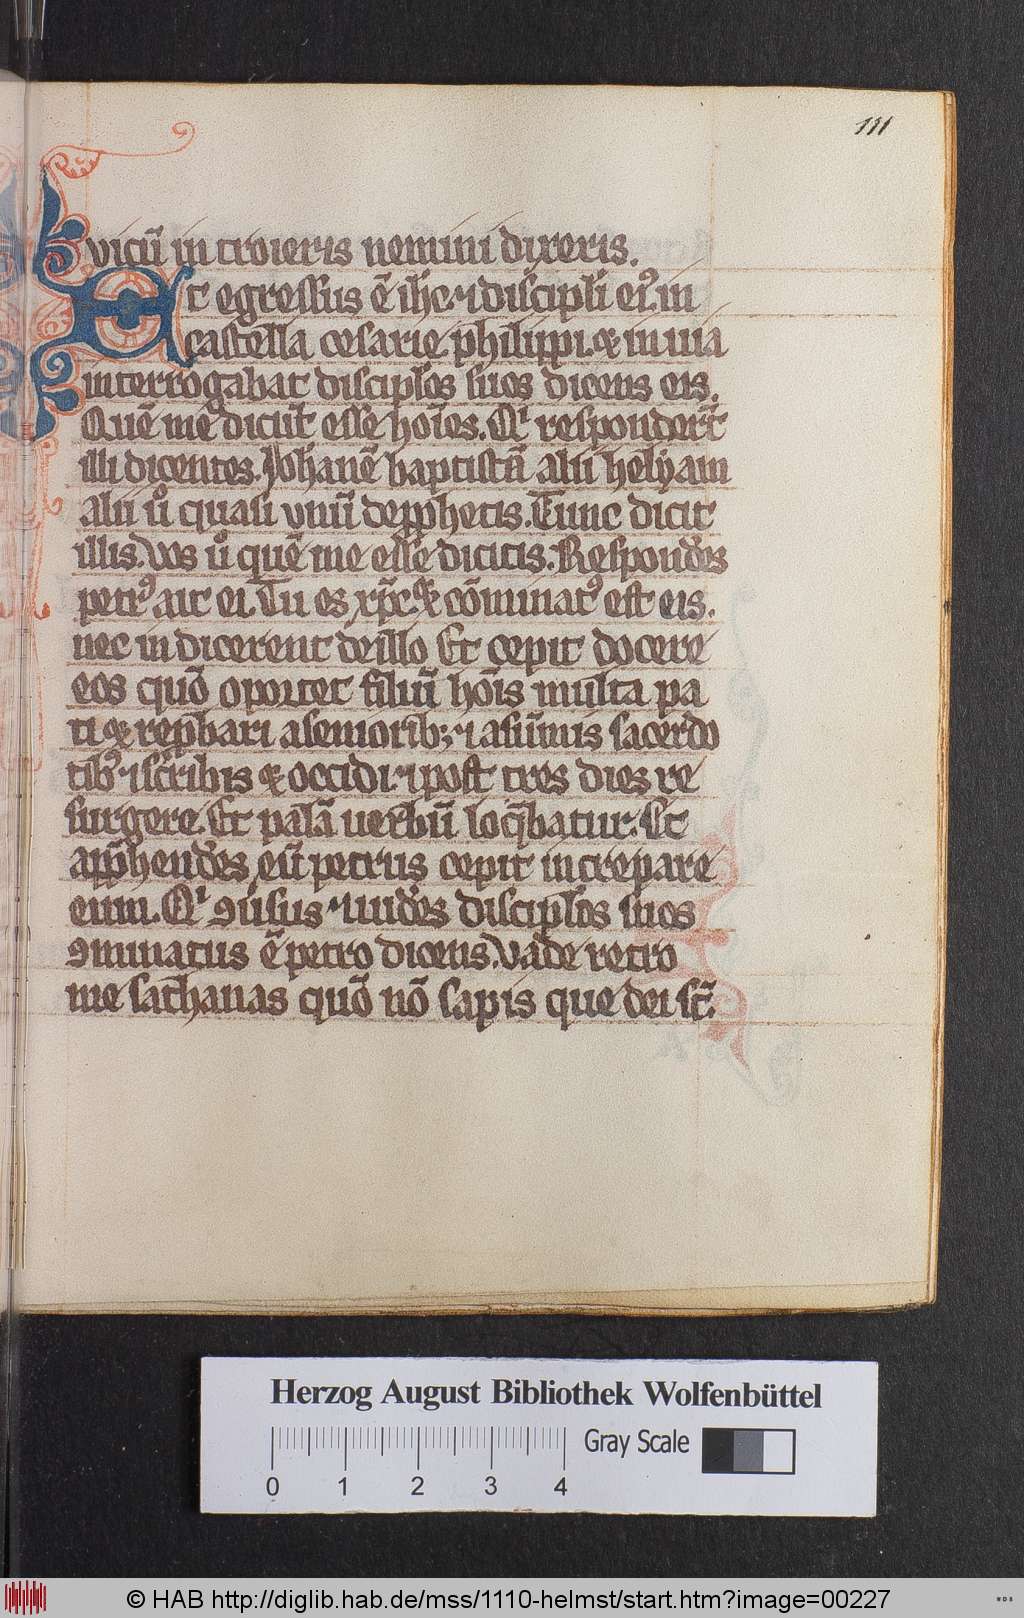 111
vicū in troieris nemini dixeris.
Et egressus ē ihc ⁊ discipli eiꝰ in
castella cesarie philippi. & in uia
interrogabat disciplos suos dicens eis.
Quē me dicūt esse hoīes. Qͥ respondert̄
illi dicentes. Johanē baptistā alii helyam
alii uͦ quasi vnū de pphetis. Tunc dicit
illis. Vos uͦ quē me esse dicitis. Respondēs
petrꝰ ait ei. Tu es xp̄c. & cōminatꝰ est eis.
nec in dicerent de illo Et cepit docere
eos quō oportet filiū hoīs multa pa
ti & rep̄hari a seniorib; ⁊ a sūmis sacerdo
tibꝰ ⁊ scribis & occidi ⁊ post tres dies re
surgere. Et palā uerbū loq̄batur. Et
app̄hendēs eū petrus cepit increpare
eum. Qͥ ꝯuersus ⁊ uidēs disciplos suos
ꝯminatus ē petro dicens. Vade retro
me sathanas quō nō sapis que dei st̄.
Herzog August Bibliothek Wolfenbüttel
Gray Scale
0 1 2 3 4
© HAB http://diglib.hab.de/mss/1110-helmst/start.htm?image=00227